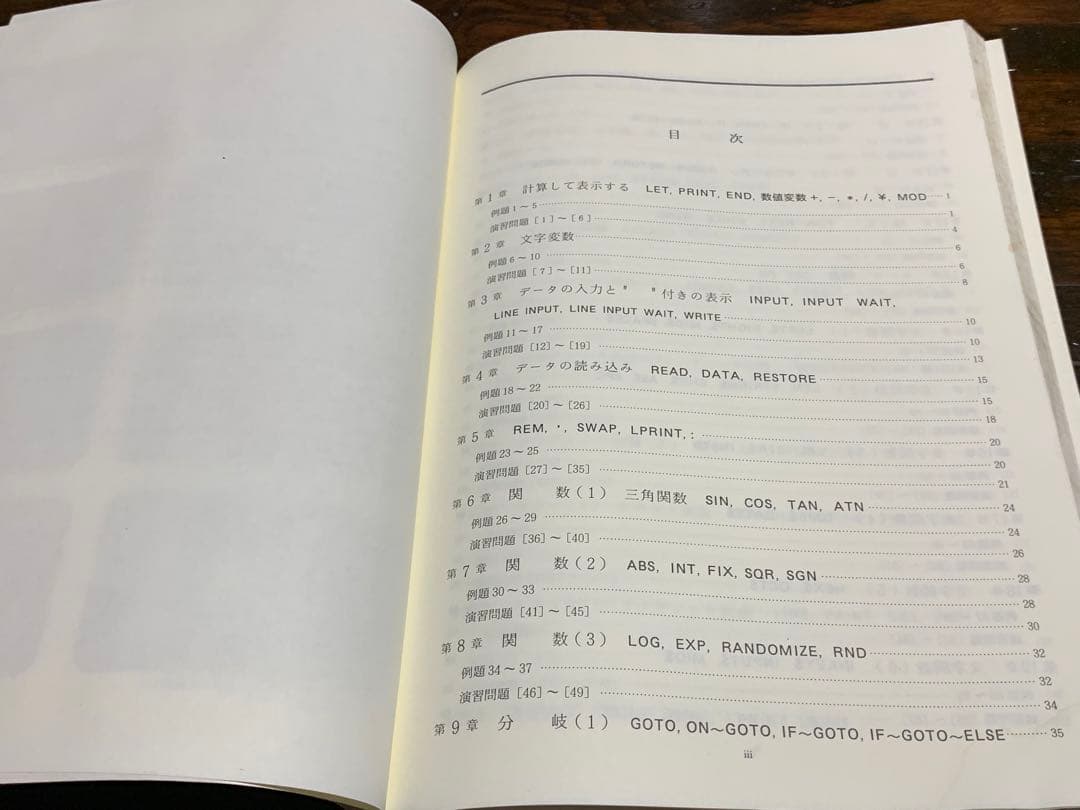 目 次
第1章 計算して表示する LET, PRINT, END, 数値変数 +, −, *, /, ¥, MOD……1
例題1〜5……1
演習問題［1］〜［6］……4
第2章 文字変数……6
例題6〜10……6
演習問題［7］〜［11］……8
第3章 データの入力と" "付きの表示 INPUT, INPUT WAIT,
LINE INPUT, LINE INPUT WAIT, WRITE……10
例題11〜17……10
演習問題［12］〜［19］……13
第4章 データの読み込み READ, DATA, RESTORE……15
例題18〜22……15
演習問題［20］〜［26］……18
第5章 REM, ', SWAP, LPRINT, ;……20
例題23〜25……20
演習問題［27］〜［35］……21
第6章 関 数（1） 三角関数 SIN, COS, TAN, ATN……24
例題26〜29……24
演習問題［36］〜［40］……26
第7章 関 数（2） ABS, INT, FIX, SQR, SGN……28
例題30〜33……28
演習問題［41］〜［45］……30
第8章 関 数（3） LOG, EXP, RANDOMIZE, RND……32
例題34〜37……32
演習問題［46］〜［49］……34
第9章 分 岐（1） GOTO, ON〜GOTO, IF〜GOTO, IF〜GOTO〜ELSE……35
iii